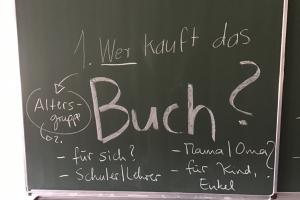 1. Wer kauft das
Buch?
Alters-
gruppe
?
- für sich?
- Schüler/Lehrer
- Mama/Oma?
- für Kind,
Enkel